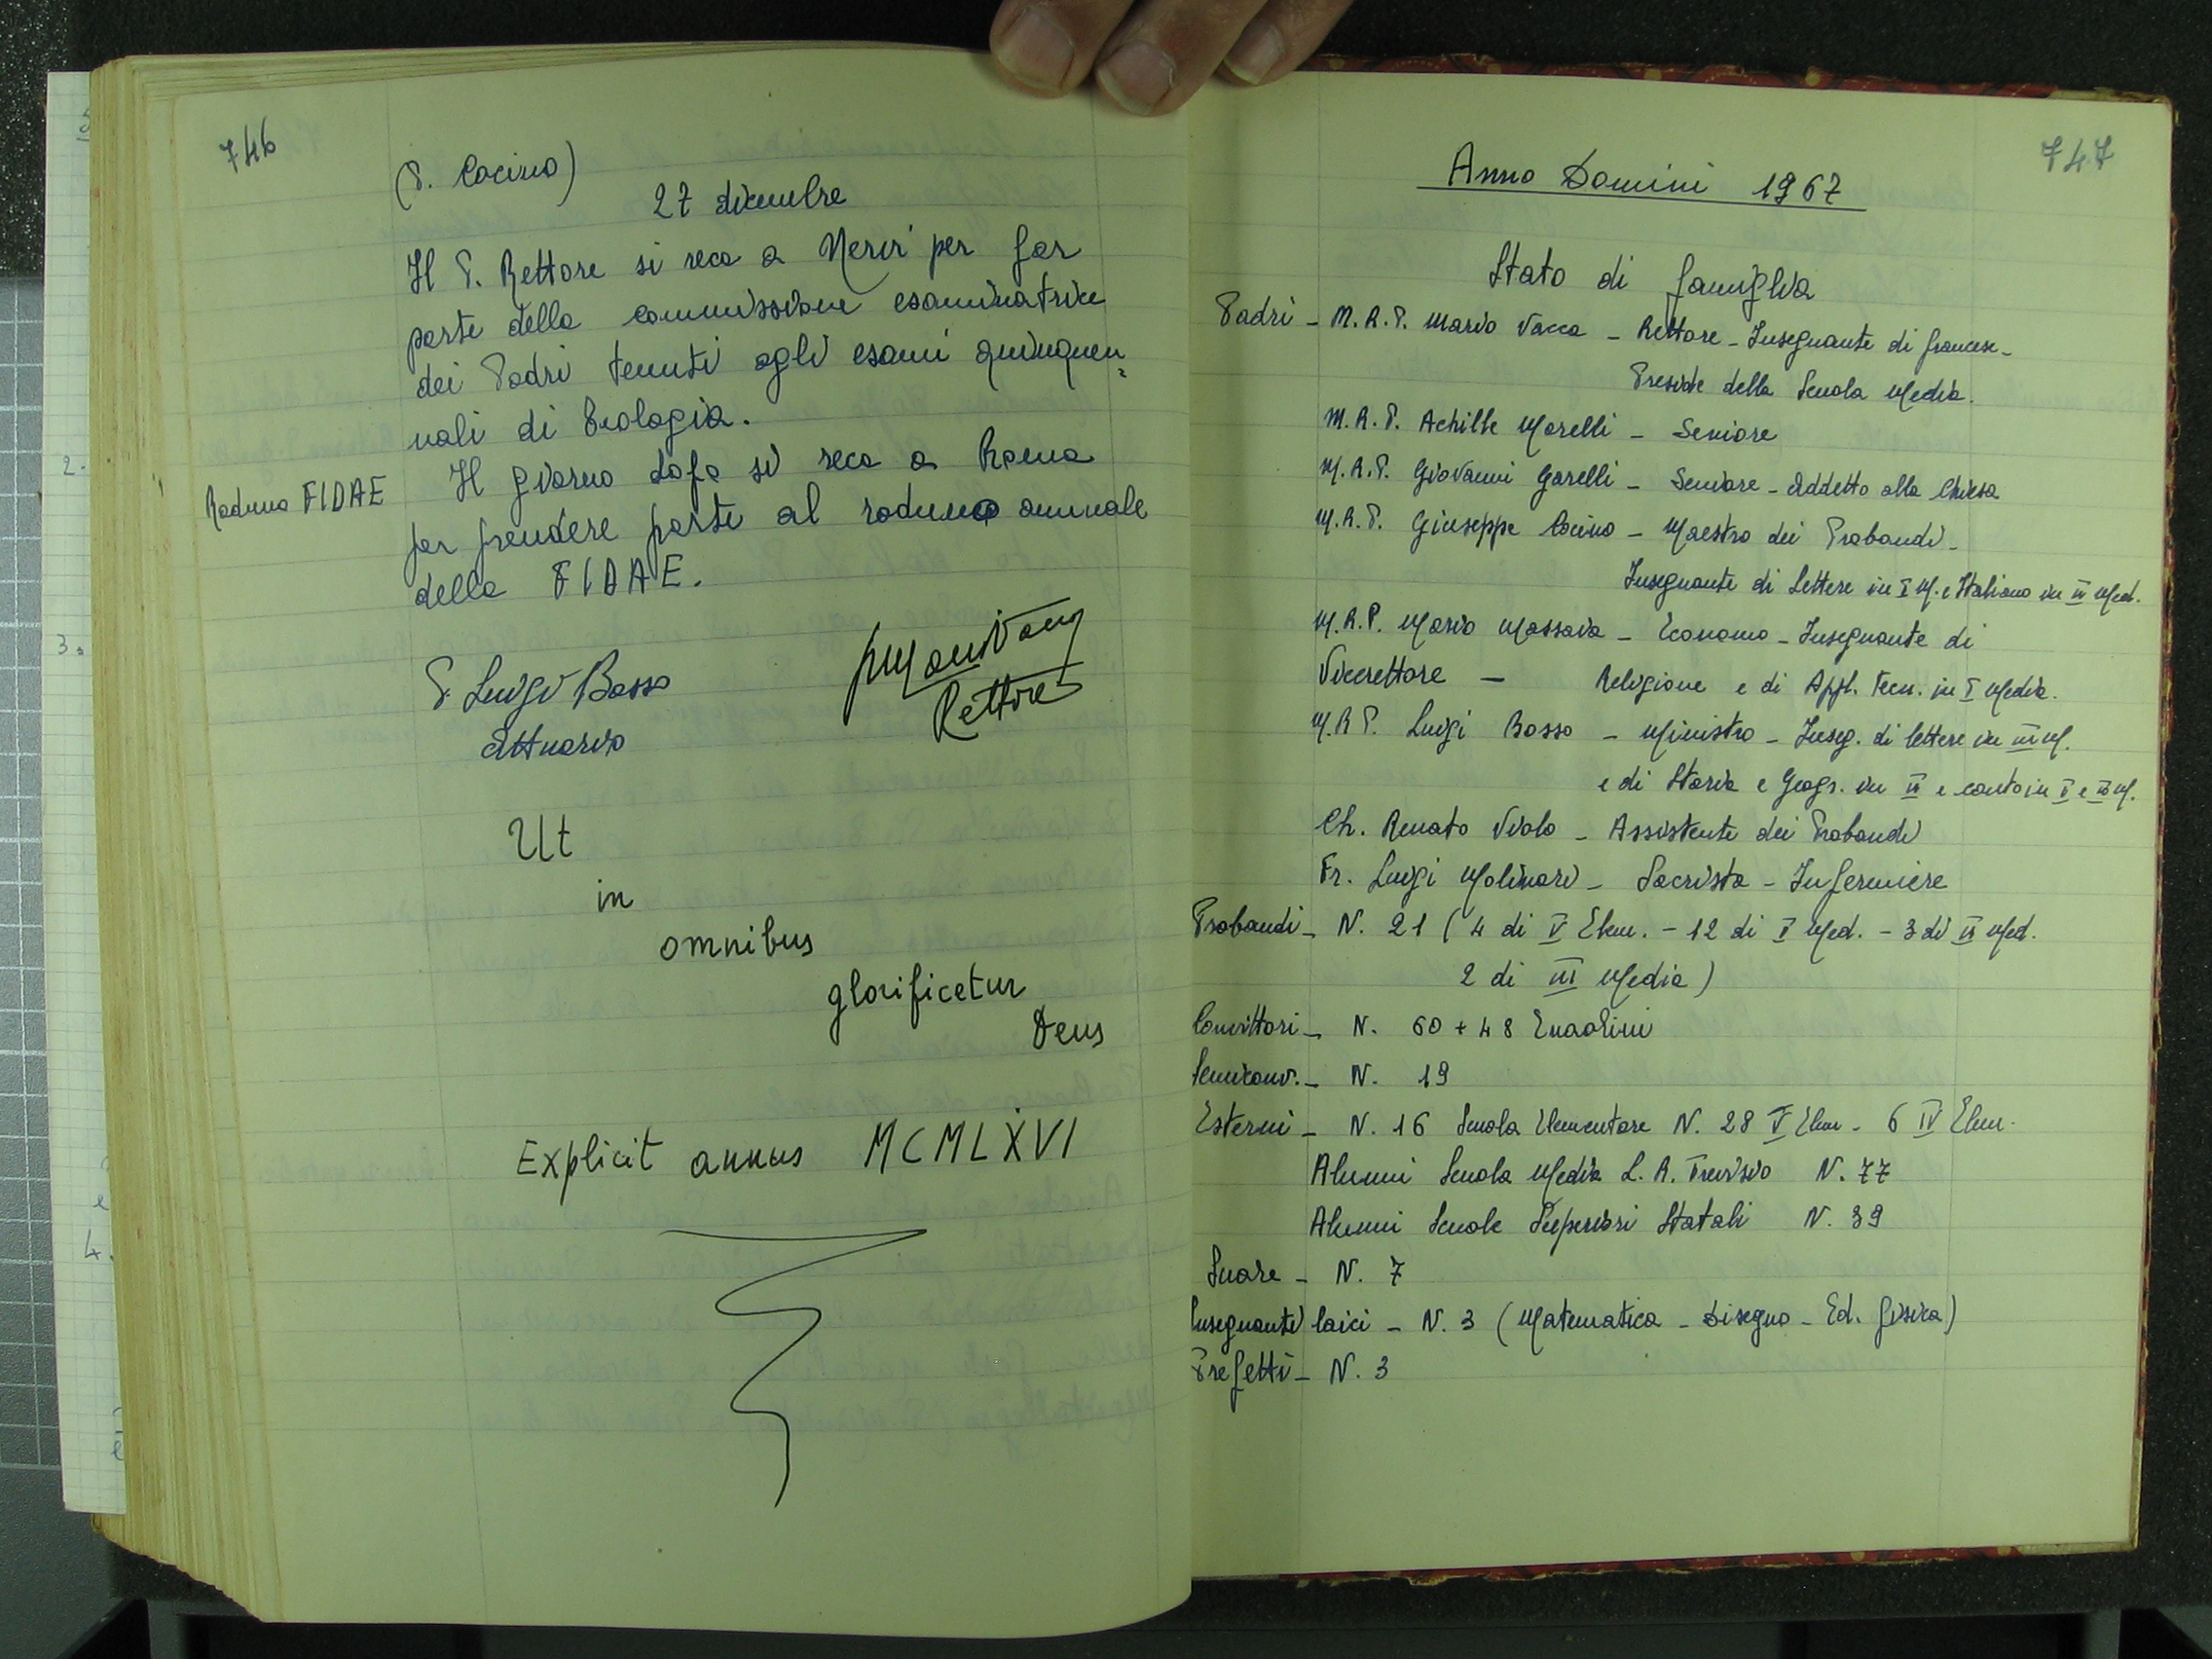 746
(P. Cocino)
27 dicembre
Il P. Rettore si reca a Nervi per far
parte della commissione esaminatrice
dei Padri tenuti agli esami quinquen=
nali di Teologia.
Raduno FIDAE
Il giorno dopo si reca a Roma
per prendere parte al raduno annuale
della FIDAE.
P. Luigi Bosso
Attuario
Rettore
Ut
in
omnibus
glorificetur
Deus
Explicit annus MCMLXVI
747
Anno Domini 1967
Stato di famiglia
Padri - M.R.P. Mario Vacca - Rettore - Insegnante di francese -
Preside della Scuola Media.
M.R.P. Achille Marelli - Seniore
M.R.P. Giovanni Garelli - Seniore - Addetto alla Chiesa
M.R.P. Giuseppe Cocino - Maestro dei Probandi -
Insegnante di Lettere in I M. e Italiano in II Med.
M.R.P. Mario Massaia - Economo - Insegnante di
Vicerettore - Religione e di Appl. Tecn. in I Media.
M.R.P. Luigi Bosso - Ministro - Inseg. di lettere in III M.
e di Storia e Geogr. in II e canto in I e II M.
Ch. Renato Viola - Assistente dei Probandi
Fr. Luigi Molinari - Sacrista - Infermiere
Probandi - N. 21 (4 di V Elem. - 12 di I Med. - 3 di II Med.
2 di III Media)
Convittori - N. 60 + 48 Enaolini
Semiconv. - N. 19
Esterni - N. 16 Scuola Elementare N. 28 V Elem - 6 IV Elem.
Alunni Scuola Media L. R. Trevisio N. 77
Alunni Scuole Superiori Statali N. 39
Suore - N. 7
Insegnanti laici - N. 3 (Matematica - Disegno - Ed. fisica)
Prefetti - N. 3